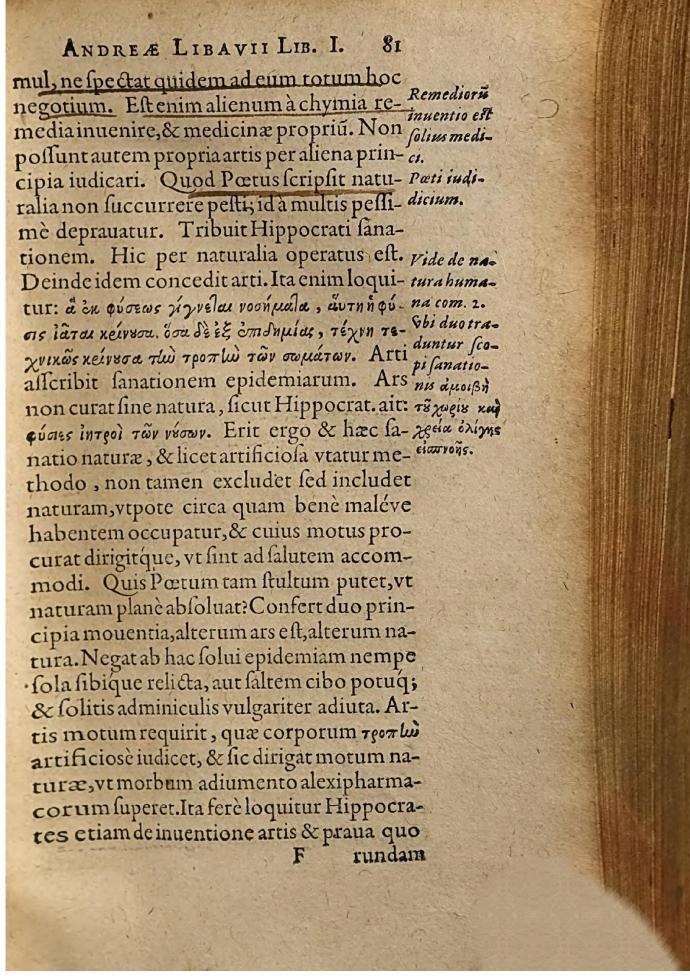 ANDREÆ LIBAVII LIB. I. 81
mul, ne spectat quidem ad eum totum hoc
negotium. Est enim alienum à chymia re-
media inuenire, & medicinæ propriū. Non
possunt autem propria artis per aliena prin-
cipia iudicari. Quod Pœtus scripsit natu-
ralia non succurrere pesti; id à multis pessi-
mè deprauatur. Tribuit Hippocrati sana-
tionem. Hic per naturalia operatus est.
Deinde idem concedit arti. Ita enim loqui-
tur: ἃ ἐκ φύσεως γίγνεται νοσήματα, ἁυτὴ ἡ φύ-
σις ἰᾶται κρίνουσα. ὅσα δὲ ἐξ ἐπιδημίας, τέχνη τε-
χνικῶς κρίνουσα τὴν τροπὴν τῶν σωμάτων. Arti
asscribit sanationem epidemiarum. Ars
non curat sine natura, sicut Hippocrat. ait:
φύσιες ἰητροὶ τῶν νύσων. Erit ergo & hæc sa-
natio naturæ, & licet artificiosa vtatur me-
thodo, non tamen excludet sed includet
naturam, vtpote circa quam benè maléve
habentem occupatur, & cuius motus pro-
curat dirigitq́ue, vt sint ad salutem accom-
modi. Quis Pœtum tam stultum putet, vt
naturam planè absoluat? Confert duo prin-
cipia mouentia, alterum ars est, alterum na-
tura. Negat ab hac solui epidemiam nempe
sola sibique relicta, aut saltem cibo potuq́;
& solitis adminiculis vulgariter adiuta. Ar-
tis motum requirit, quæ corporum τροπὴν
artificiosè iudicet, & sic dirigat motum na-
turæ, vt morbum adiumento alexipharma-
corum superet. Ita ferè loquitur Hippocra-
tes etiam de inuentione artis & praua quo
F rundam
Remediorū
inuentio est
solius medi-
ci.
Pœti iudi-
dicium.
Vide de na-
tura huma-
na com. 2.
Vbi duo tra-
duntur sco-
pi sanatio-
nis ἀμοιβὴ
τοῦ χωρίου καὶ
χρεία ὀλίγης
εἰσπνοῆς.